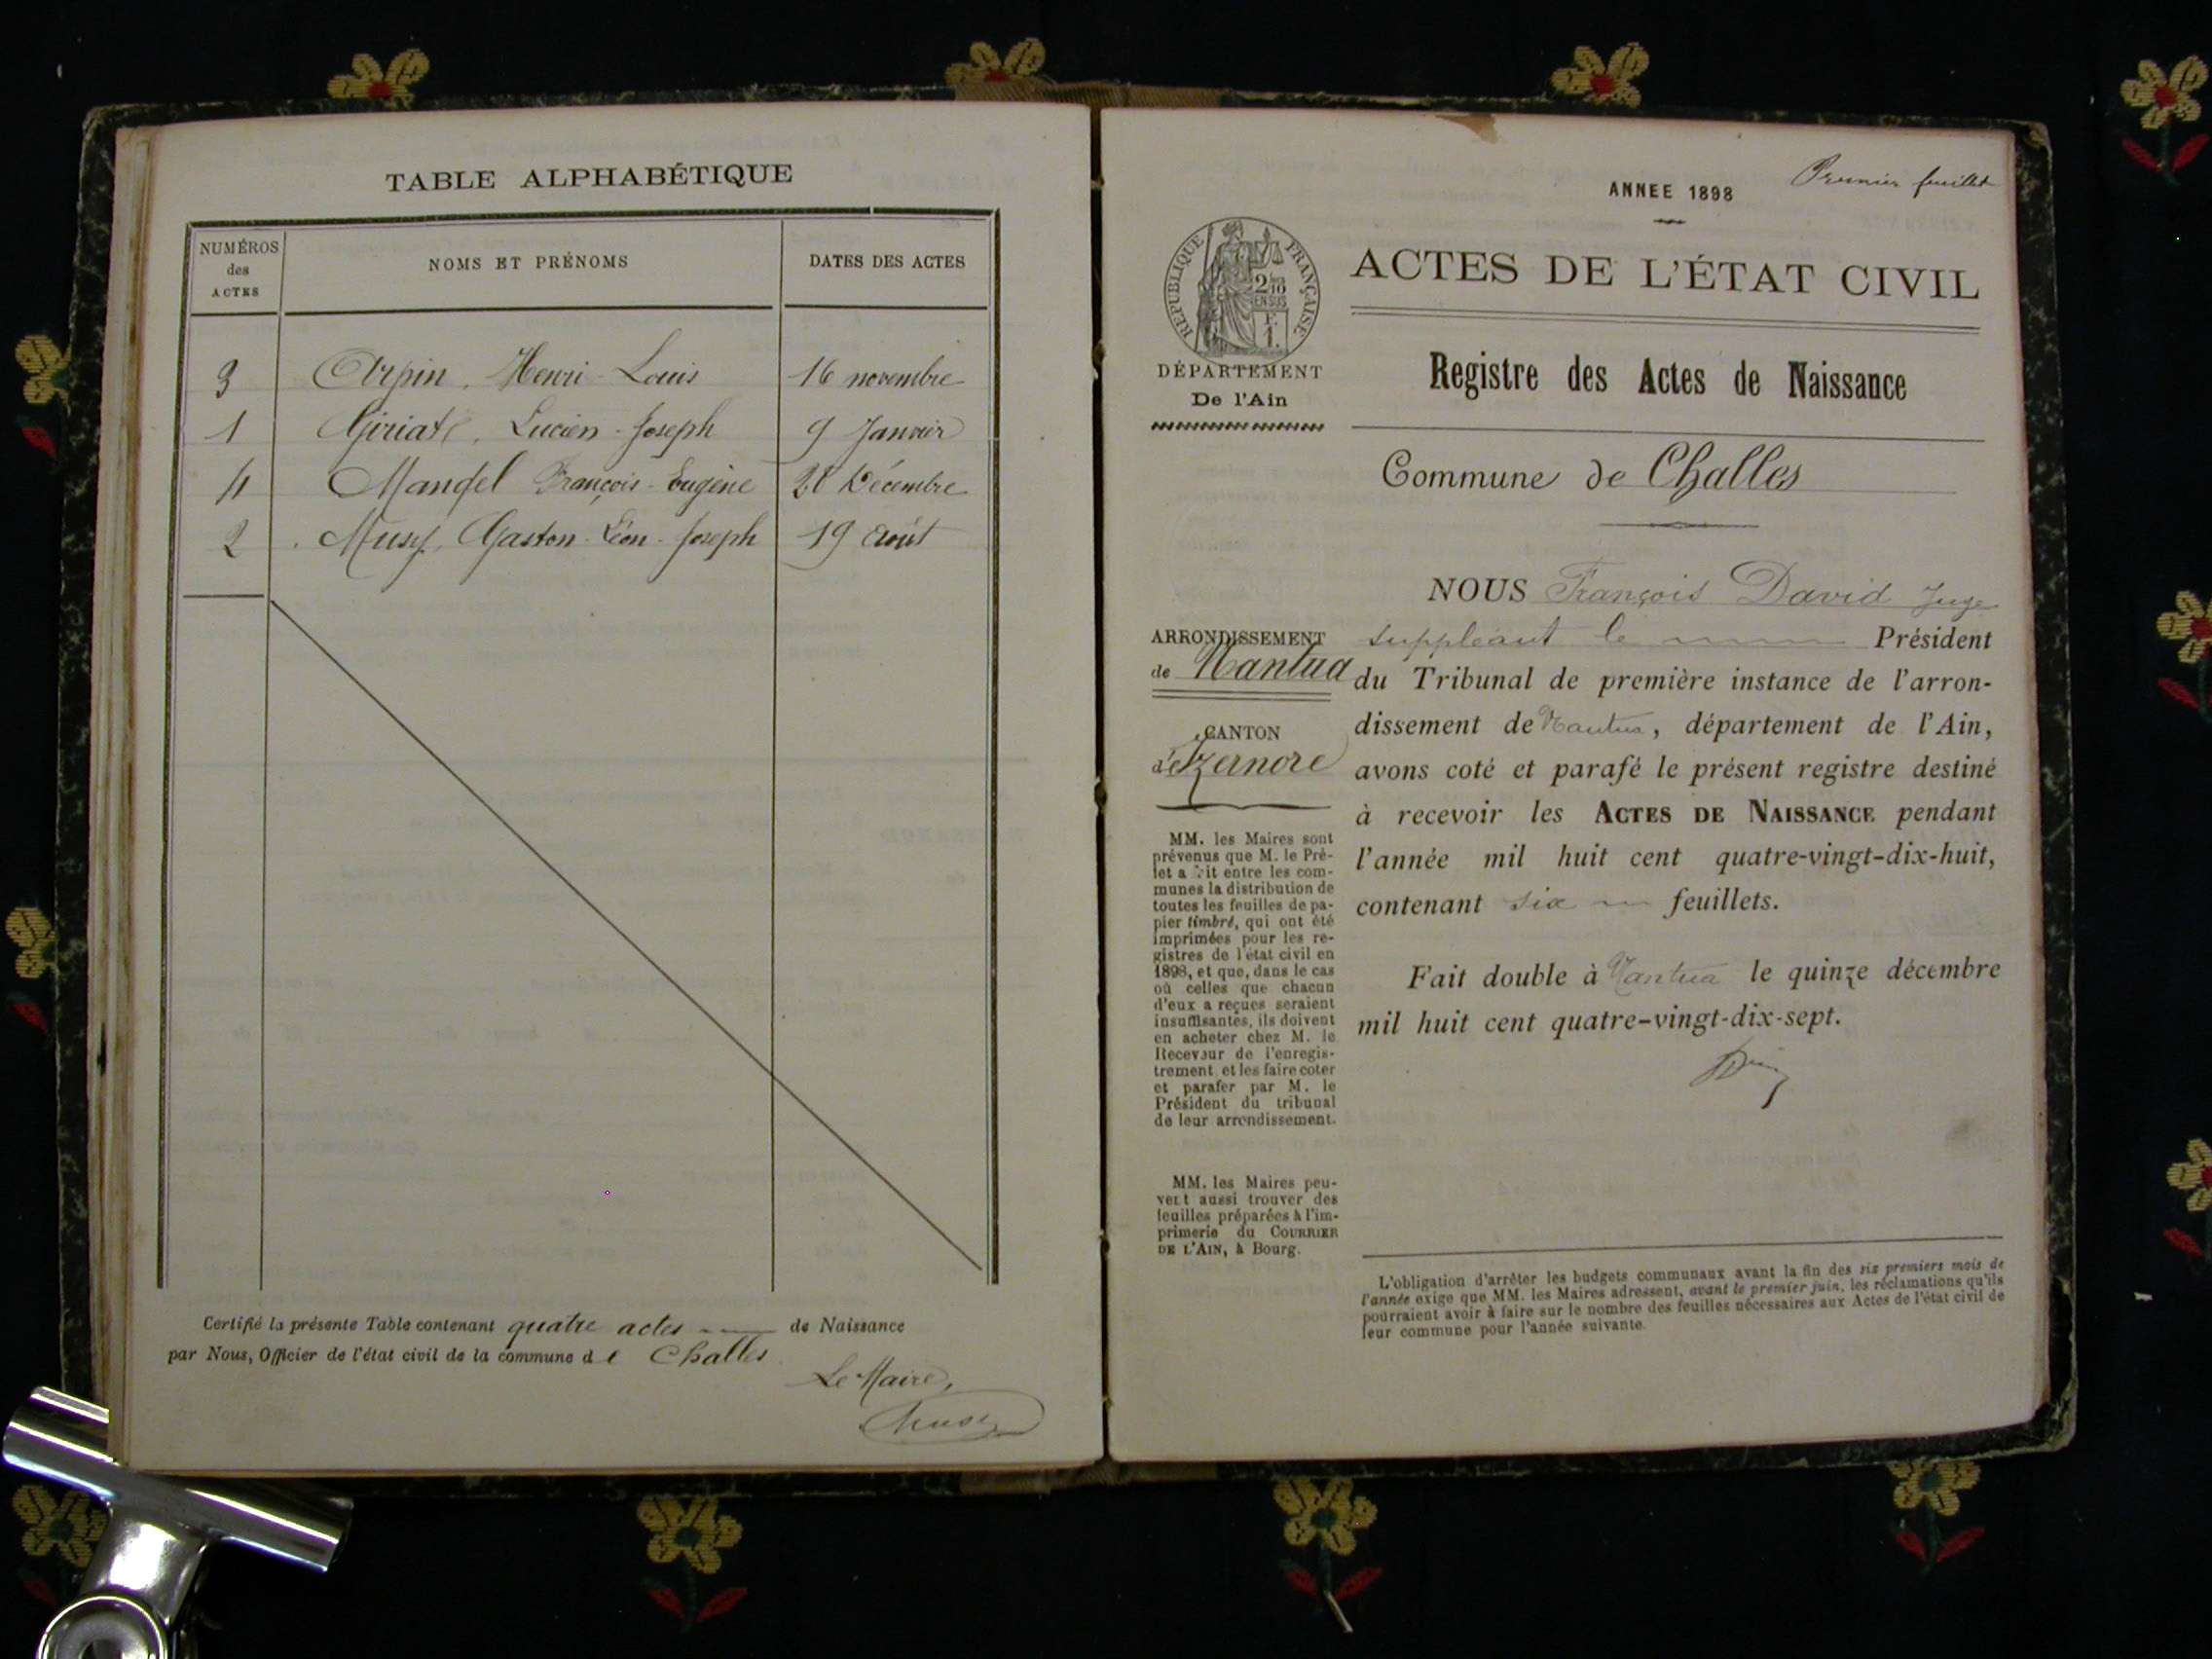 TABLE ALPHABÉTIQUE
NUMÉROS des ACTES
NOMS ET PRÉNOMS
DATES DES ACTES
3 Arpin, Henri-Louis 16 novembre
1 Lucien-Joseph 9 Janvier
4 François-Eugène Décembre
2 Musy, Gaston-Léon-Joseph 19 Août
Certifié la présente Table contenant quatre actes de Naissance
par Nous, Officier de l'état civil de la commune de Challes
Le Maire,
Musy
Premier feuillet
ANNEE 1898
RÉPUBLIQUE FRANÇAISE
2/10
EN SUS
F.
1.
DÉPARTEMENT
De l'Ain
ACTES DE L'ÉTAT CIVIL
Registre des Actes de Naissance
Commune de Challes
ARRONDISSEMENT
de Nantua
CANTON
d'Izernore
MM. les Maires sont
prévenus que M. le Pré-
fet a fait entre les com-
munes la distribution de
toutes les feuilles de pa-
pier timbré, qui ont été
imprimées pour les re-
gistres de l'état civil en
1898, et que, dans le cas
où celles que chacun
d'eux a reçues seraient
insuffisantes, ils doivent
en acheter chez M. le
Receveur de l'enregis-
trement et les faire coter
et parafer par M. le
Président du tribunal
de leur arrondissement.
MM. les Maires peu-
vent aussi trouver des
feuilles préparées à l'im-
primerie du COURRIER
DE L'AIN, à Bourg.
NOUS François David Juge
suppléant le Président
du Tribunal de première instance de l'arron-
dissement de Nantua, département de l'Ain,
avons coté et parafé le présent registre destiné
à recevoir les ACTES DE NAISSANCE pendant
l'année mil huit cent quatre-vingt-dix-huit,
contenant six feuillets.
Fait double à Nantua le quinze décembre
mil huit cent quatre-vingt-dix-sept.
L'obligation d'arrêter les budgets communaux avant la fin des six premiers mois de
l'année exige que MM. les Maires adressent, avant le premier juin, les réclamations qu'ils
pourraient avoir à faire sur le nombre des feuilles nécessaires aux Actes de l'état civil de
leur commune pour l'année suivante.